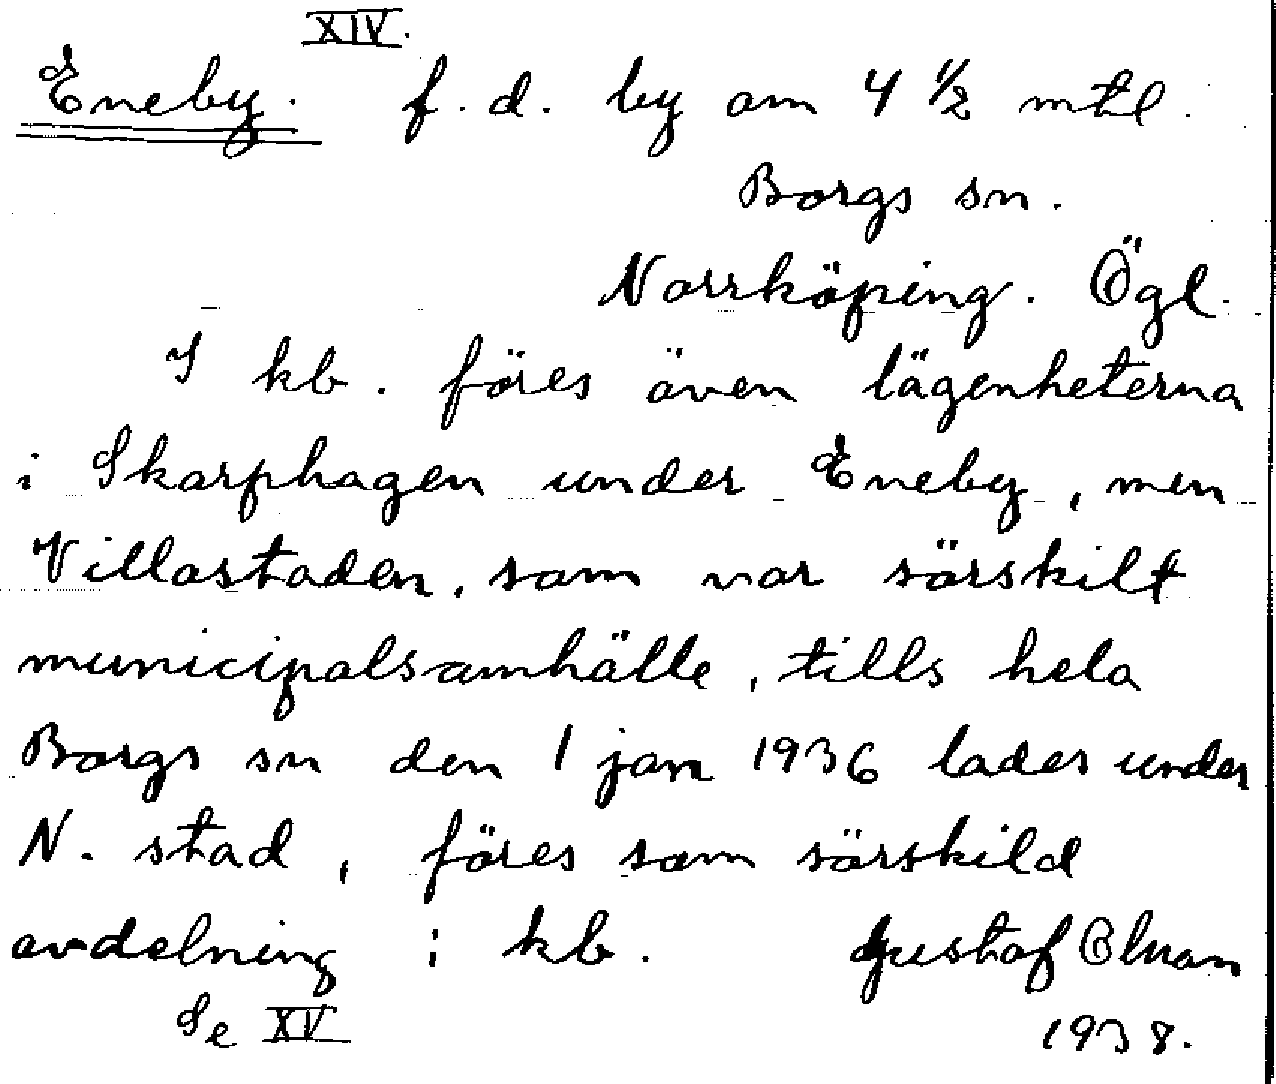 XIV.
Eneby. f.d. by om 4 1/2 mtl.
Borgs sn.
Norrköping. Ögl.
I kb. föres även lägenheterna
i Skarphagen under Eneby, men
Villastaden, som var särskilt
municipalsamhälle, tills hela
Borgs sn den 1 jan 1936 lades under
N. stad, föres som särskild
avdelning i kb. Gustaf
Se XV 1938.